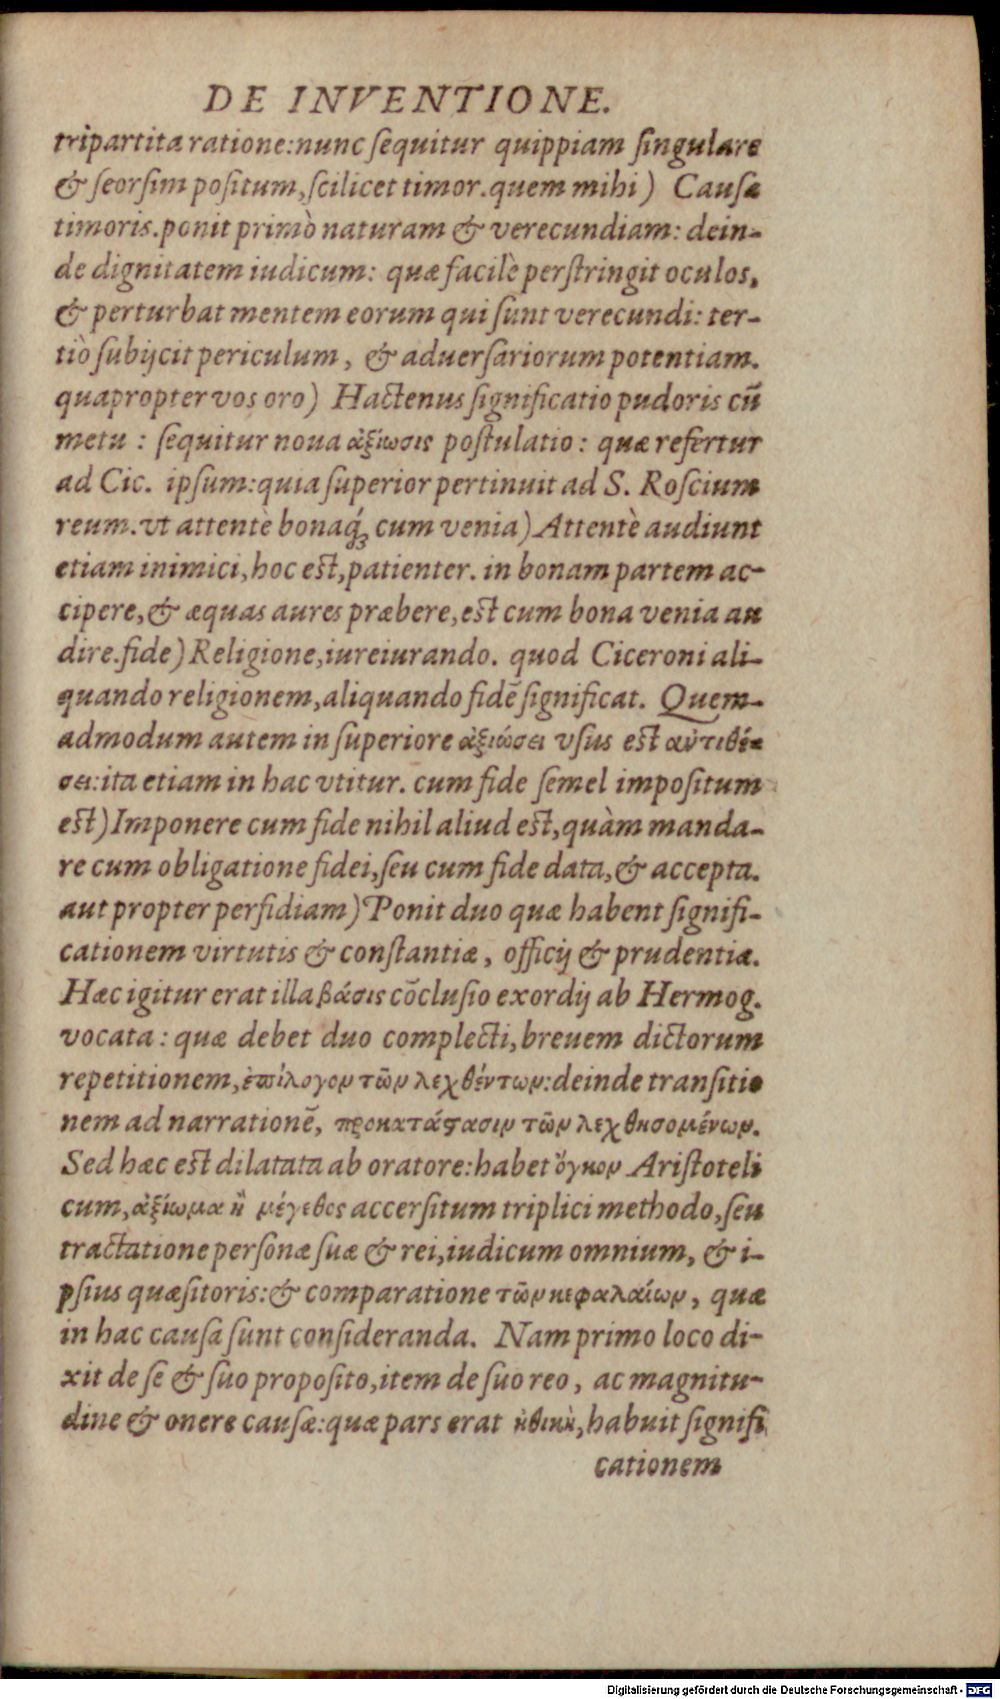 DE INVENTIONE.
tripartita ratione:nunc ſequitur quippiam ſingulare
& ſeorſim poſitum,ſcilicet timor.quem mihi) Cauſæ
timoris.ponit primò naturam & verecundiam: dein-
de dignitatem iudicum: quæ facilè perſtringit oculos,
& perturbat mentem eorum qui ſunt verecundi: ter-
tiò ſubijcit periculum, & aduerſariorum potentiam.
quapropter vos oro) Hactenus ſignificatio pudoris cū
metu : ſequitur noua ἀξίωσις poſtulatio: quæ refertur
ad Cic. ipſum:quia ſuperior pertinuit ad S. Roſcium
reum.vt attentè bonaq́; cum venia) Attentè audiunt
etiam inimici, hoc eſt,patienter. in bonam partem ac-
cipere,& æquas aures præbere,eſt cum bona venia au
dire.fide) Religione,iureiurando. quod Ciceroni ali-
quando religionem,aliquando fidē ſignificat. Quem-
admodum autem in ſuperiore ἀξιώσει vſus eſt ἀντιθέ-
σει:ita etiam in hac vtitur. cum fide ſemel impoſitum
eſt) Imponere cum fide nihil aliud eſt,quàm manda-
re cum obligatione fidei,ſeu cum fide data,& accepta.
aut propter perfidiam) Ponit duo quæ habent ſignifi-
cationem virtutis & conſtantiæ, officij & prudentiæ.
Hæc igitur erat illa βάσις cōcluſio exordij ab Hermog.
vocata: quæ debet duo complecti,breuem dictorum
repetitionem,ἐπίλογον τῶν λεχθέντων:deinde tranſitio
nem ad narrationē, προκατάστασιν τῶν λεχθησομένων.
Sed hæc eſt dilatata ab oratore:habet ὄγκον Ariſtoteli
cum,ἀξίωμα ἢ μέγεθος accerſitum triplici methodo,ſeu
tractatione perſonæ ſuæ & rei,iudicum omnium, & i-
pſius quæſitoris:& comparatione τῶν κεφαλαίων, quæ
in hac cauſa ſunt conſideranda. Nam primo loco di-
xit de ſe & ſuo propoſito,item de ſuo reo, ac magnitu-
dine & onere cauſæ:quæ pars erat ἠθικὴ,habuit ſignifi
cationem
Digitalisierung gefördert durch die Deutsche Forschungsgemeinschaft - DFG